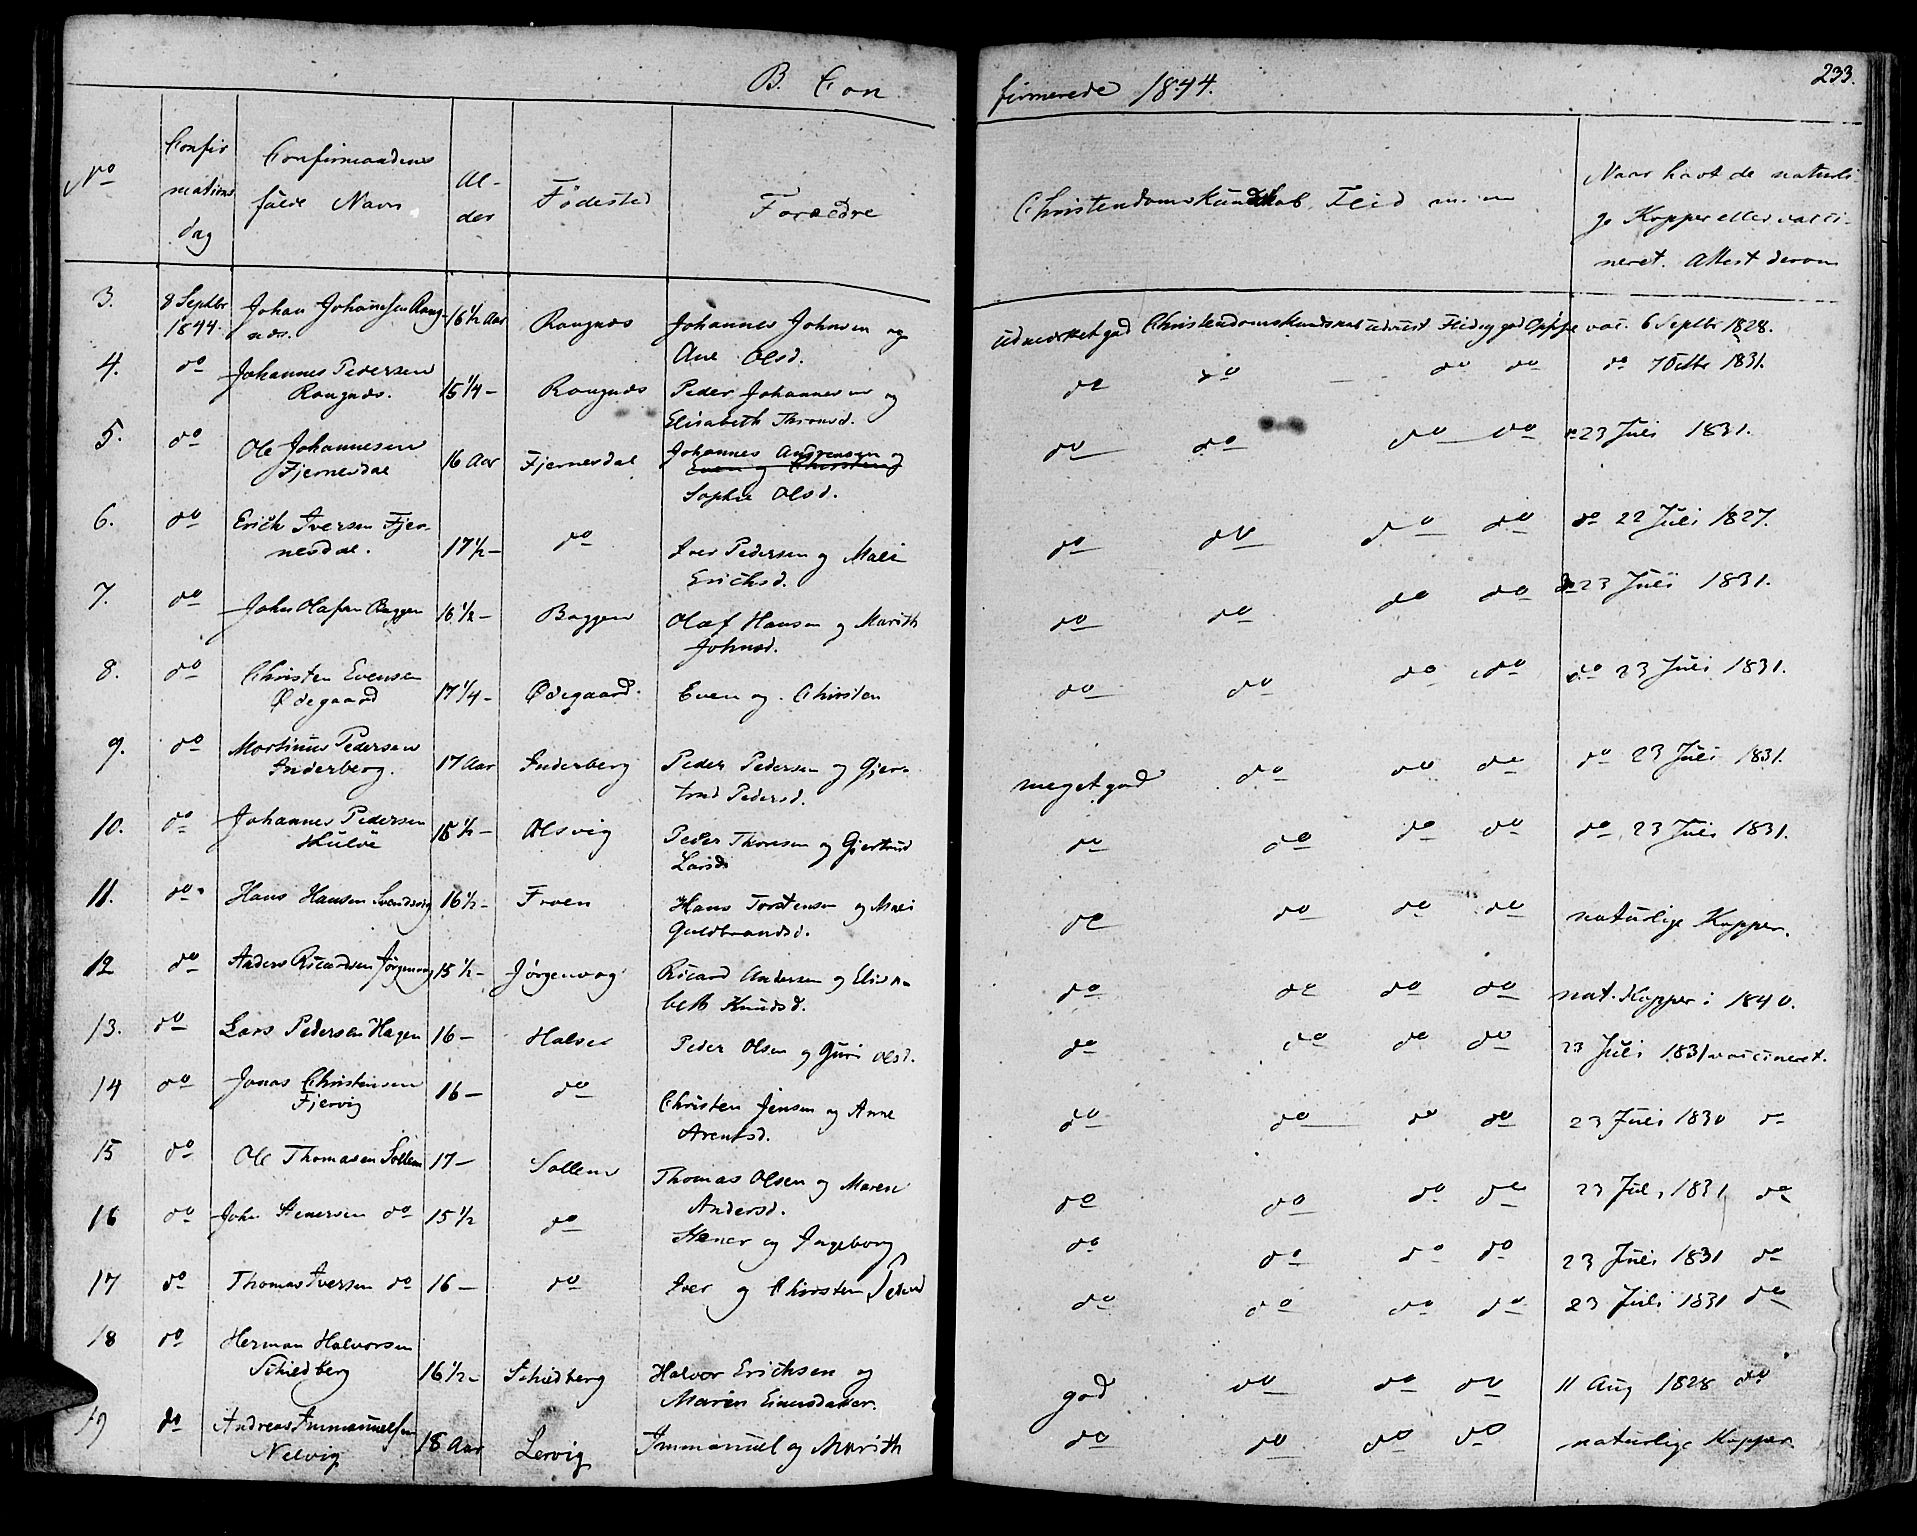 B. Con
firmerede 1844.
233.
No
Confir
mations
dag
Confirmandens
fulde Navn
Al-
der
Fødested
Forældre
Christendomskundskab, Flid m. m
Naar havt de naturli-
ge Kopper eller vacci-
neret. Attest derom
3. 8 Septbr 1844. Johan Johannesen Roug-
nds. 16½ Aar Rougnds Johannes Johnsen og
Ane Olsd. udmærket god Christendomskundskab udvist Flid og god Opf. vac. 6 Septbr 1828.
4. do Johannes Pedersen
Rougnds. 15¼ - Rougnds Peder Johannesen og
Elisabeth Thronsd. do do do do do 7 Octbr 1831.
5. do Ole Johannesen
Fjernesdal 16 Aar Fjernesdal Johannes Andreasen og
Even og Christen
Sophie Olsd. do do do do 23 Juli 1831.
6. do Erich Iversen Fjer-
nesdal. 17½ - do Iver Pedersen og Mali
Erichsd. do do do do do 22 Juli 1827.
7. do John Olafsen Baggen 16½ - Baggen Olaf Hansen og Marith
Johnsd. do do do do do 23 Juli 1831.
8. do Christen Evensen
Ødegaard 17¼ - Ødegaard. Even og Christen do do do do do 23 Juli 1831.
9. do Martinus Pedersen
Inderberg. 17 Aar Inderberg Peder Pedersen og Gjer-
trud Pedersd. meget god do do do do 23 Juli 1831.
10. do Johannes Pedersen
15½ - Alsvig Peder Thoresen og Gjertrud
Larsd. do do do do do 23 Juli 1831.
11. do Hans Hansen Svendsvig 16½ - Froen Hans Torstensen og Mari
Guldbrandsd. do do do do naturlige Kopper.
12 do Anders Ricardsen Jørgenvog 15½ - Jørgenvog Ricard Andersen og Elisa-
beth Knudsd. do do do do nat. Kopper i 1840.
13. do Lars Pedersen Hagen 16 - Halses Peder Olsen og Guri Olsd. do do do do 23 Juli 1831 vaccineret.
14 do Jonas Christensen
Fjervig 16 - do Christen Jensen og Anne
Arentsd. do do do do 23 Juli 1830 do
15 do Ole Thomasen Sollem 17 - Sollem Thomas Olsen og Maren
Andersd. do do do do 23 Juli 1831 do
16 do John Stenersen do 15½ do Stener og Ingeborg do do do do 23 Juli 1831 do
17 do Thomas Iversen do 16 - do Iver og Christen do do do do 23 Juli 1831 do
18 do Herman Halvorsen
Schiedberg 16½ - Schiedberg Halvor Erichsen og
Maren Einersdatter. god do do do 11 Aug 1828 do
19 do Andreas Immanuelsen
Nelvig 18 Aar Lervig Immanuel og Marith do do do do naturlige Kopper